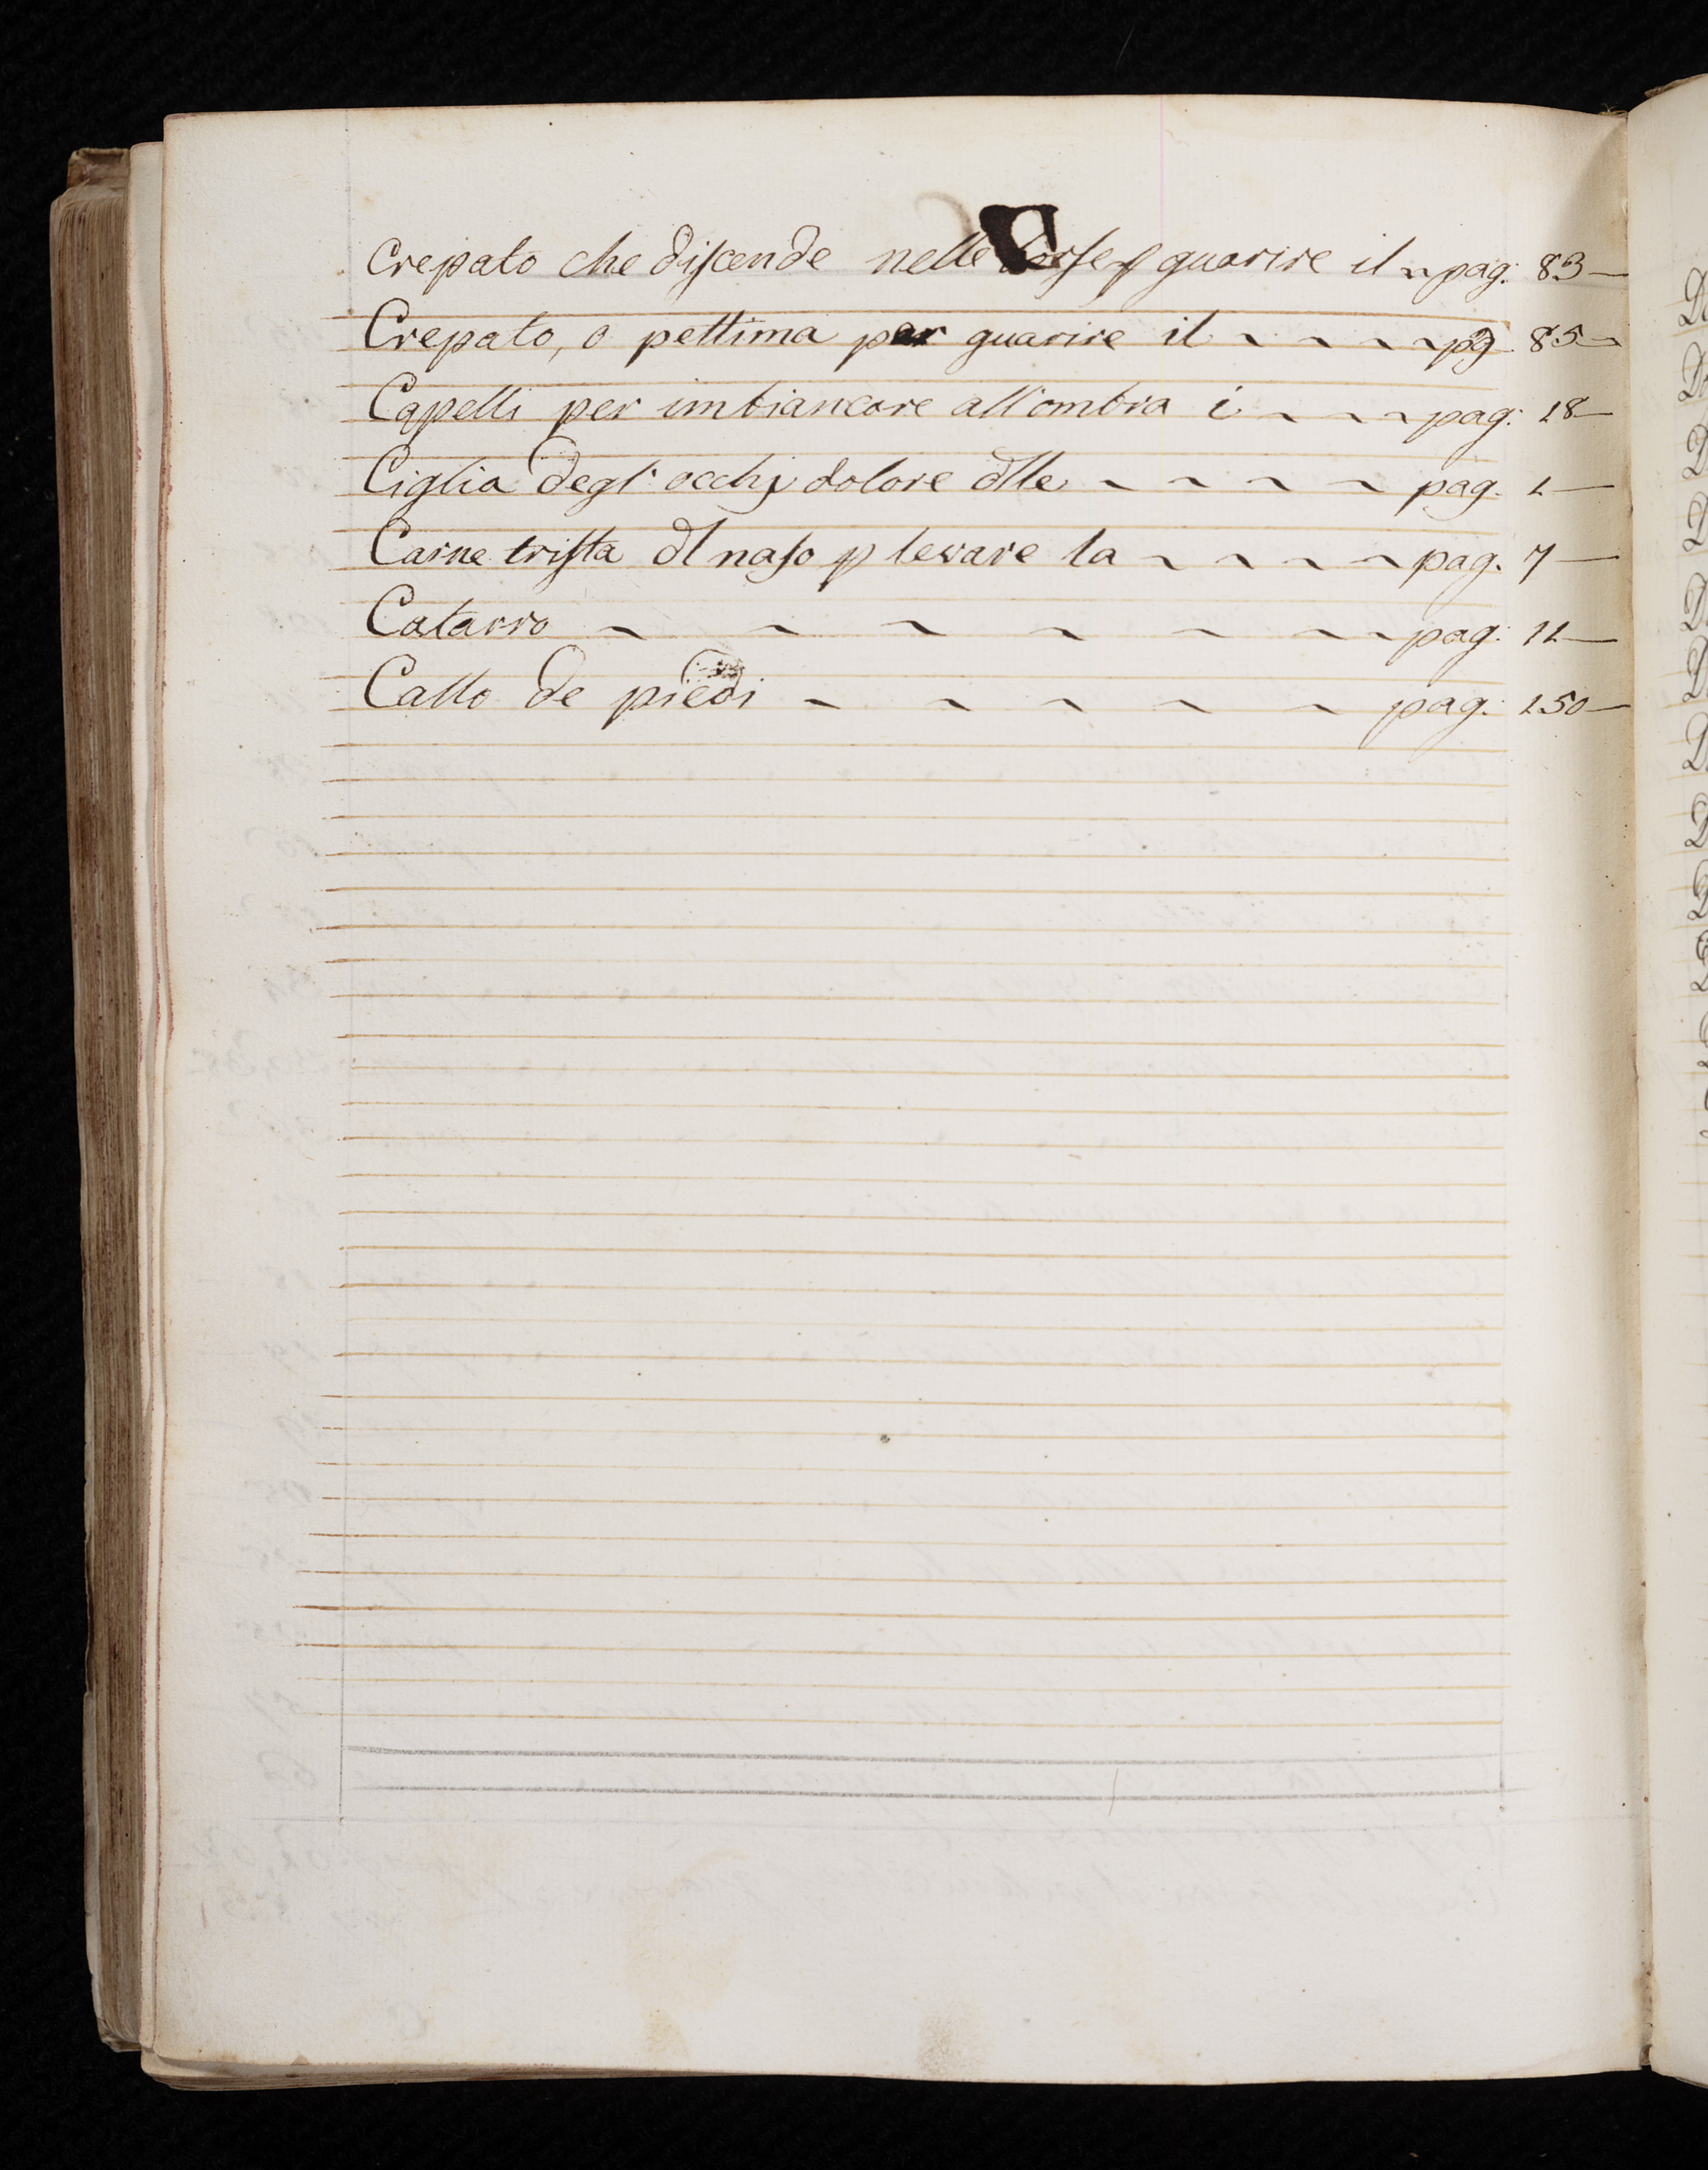 C
Crepato che discende nelle borse p guarire il ~ pag: 83 —
Crepato, o pettima per guarire il ~ ~ ~ ~ pag 85 ~
Capelli per imbiancare all'ombra i ~ ~ ~ pag: 18 —
Ciglia degl'occhj dolore dlle ~ ~ ~ ~ pag. 1 —
Carne trista dl naso p levare la ~ ~ ~ ~ pag. 7 —
Catarro ~ ~ ~ ~ ~ ~ ~ pag: 11 —
Callo de piedi ~ ~ ~ ~ ~ pag: 150 —